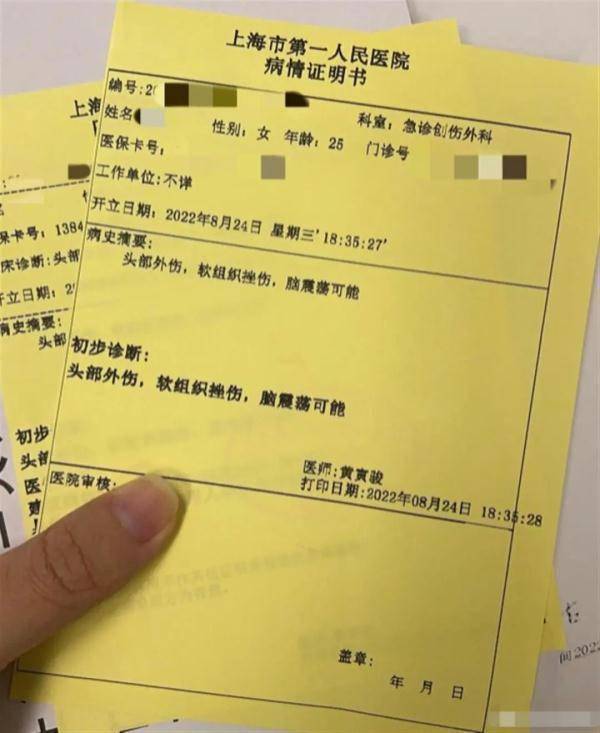 上海市第一人民医院
病情证明书
编号:2
姓名
科室: 急诊创伤外科
性别: 女 年龄: 25 门诊号
医保卡号:
工作单位:不详
开立日期: 2022年8月24日 星期三'18:35:27'
病史摘要:
头部外伤, 软组织挫伤, 脑震荡可能
初步诊断:
头部外伤, 软组织挫伤, 脑震荡可能
医师:黄寅骏
医院审核:
打印日期:2022年08月24日 18:35:28
盖章:
年 月 日
上海
保卡号: 1384
床诊断:头部
开立日期: 2
病史摘要:
头部
初步
头部
医
间2022